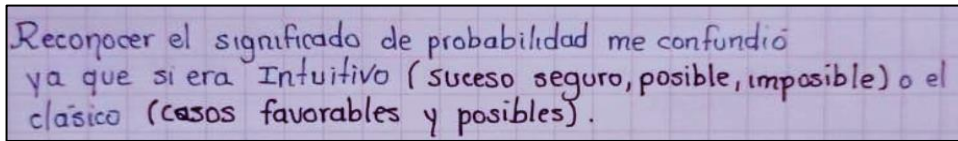 Reconocer el significado de probabilidad me confundió
ya que si era Intuitivo (suceso seguro, posible, imposible) o el
clásico (casos favorables y posibles).